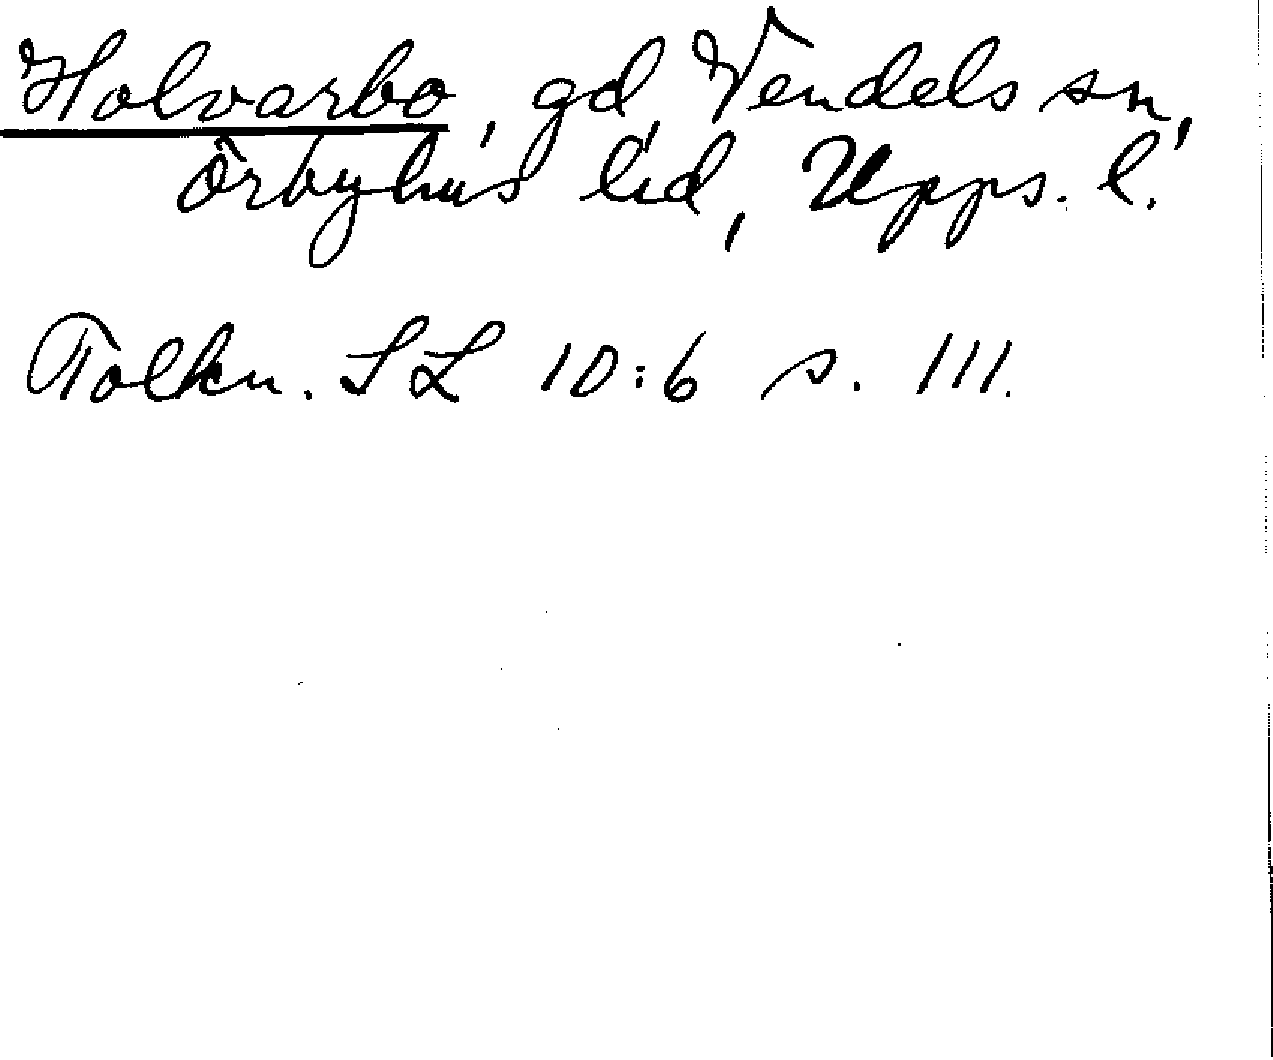 Holvarbo, gd, Vendels sn,
Örbyhus hd, Upps. l.
Tolkn. SL 10:6 s. 111.